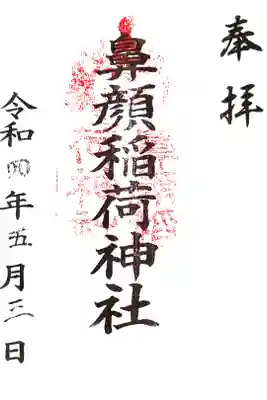 奉拝
鼻顔稲荷神社
令和四年五月三日